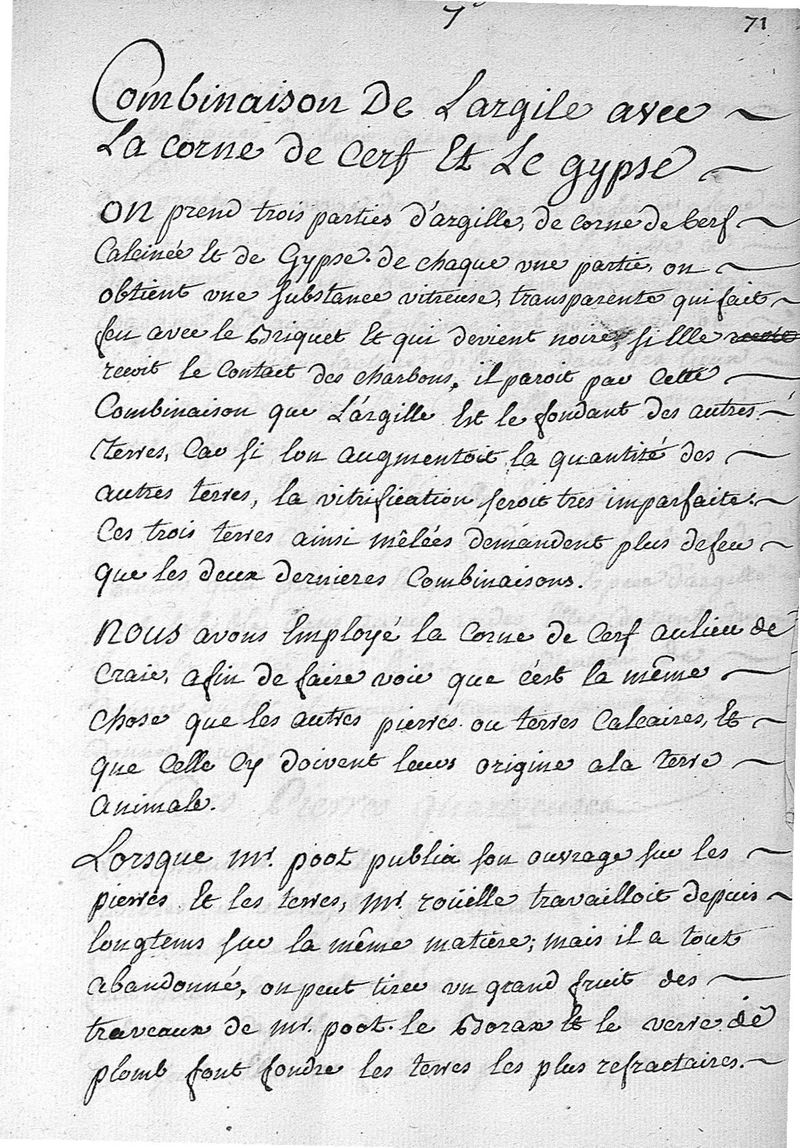 7e 71
Combinaison De Largile avec
La corne de Cerf Et Le gypse
on prend trois parties d'argille, de corne de Cerf
Calcinée Et de Gypse de chaque vne partie, on
obtient vne substance vitreuse, transparente qui fait
feu avec le Briquet Et qui devient noire, si Elle
recoit le Contact des charbons, il paroit par Cette
Combinaison que L'argille Est le fondant des autres
Terres, Car si lon augmentoit la quantité des
autres terres, la vitrification seroit tres imparfaite.
Ces trois terres ainsi mêlées demandent plus defeu
que les deux dernieres Combinaisons.
nous avons Employé la Corne de Cerf aulieu de
Craie, afin de faire voir que c'est la même
chose que les autres pierres ou terres Calcaires, Et
que Celle Cy doivent leurs origine ala terre
animale.
Lorsque mr. poot publia son ouvrage sur les
pierres Et les terres, mr. roüelle travailloit depuis
longtems sur la même matiere; mais il a tout
abandonné, on peut tirer vn grand fruit des
traveaux de mr. poot. le Borax Et le verre de
plomb font fondre les terres les plus refractaires.